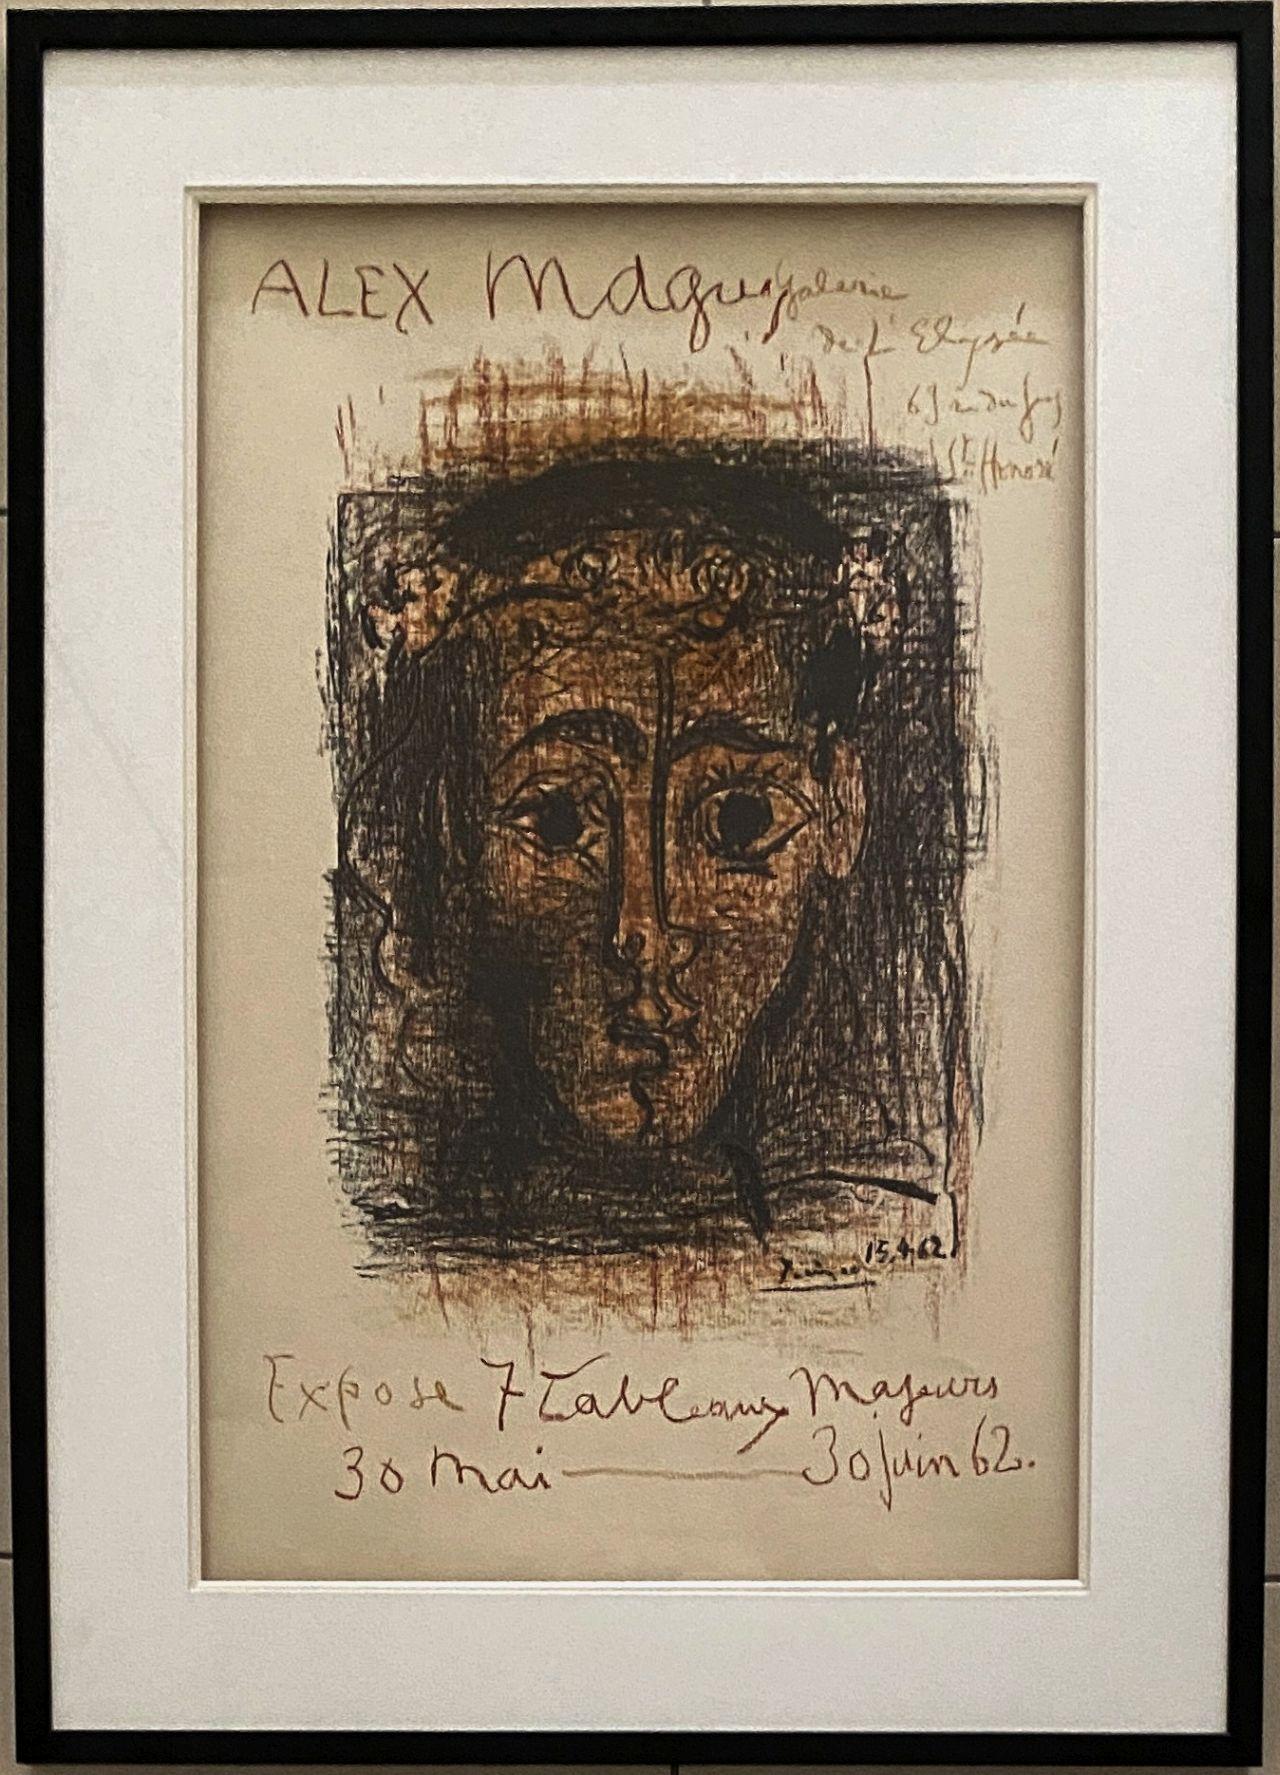 ALEX Maguy Galerie
de L'Elysée
69 rue du fbg
St. Honoré
Picasso 15.4.62
Expose 7 Tableaux Majeurs
30 Mai — 30 juin 62.